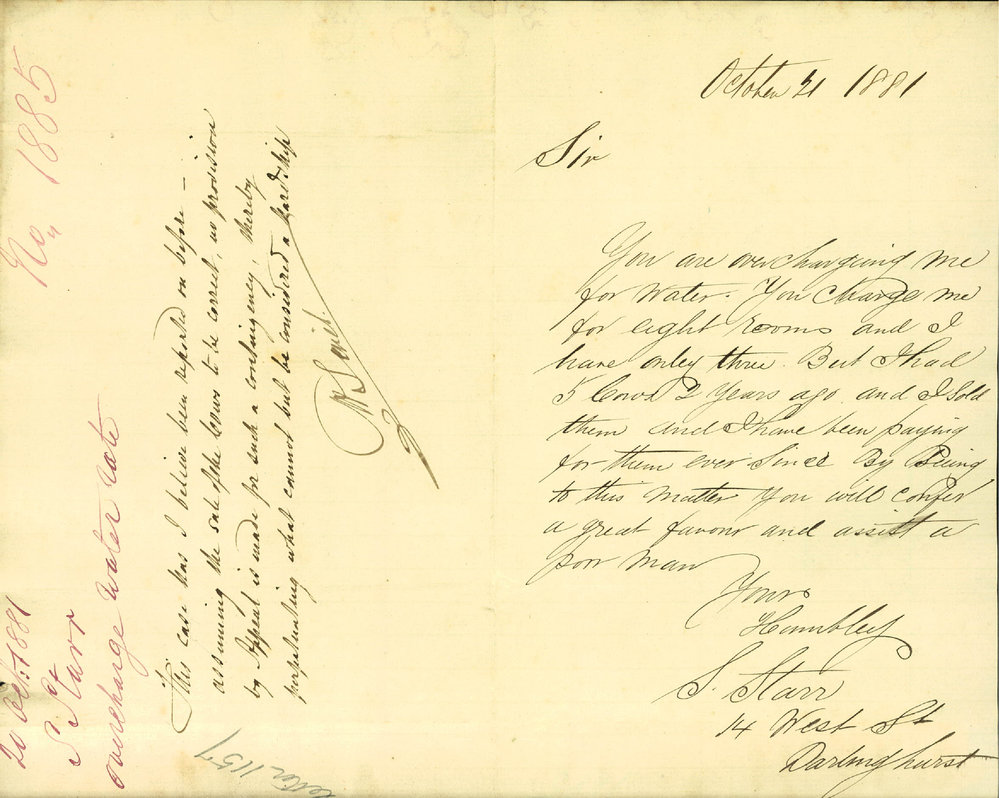 October 21 1881
Sir
You are overchargeing me
for Water. You charge me
for eight Rooms and I
have onley three. But I had
5 Cows 2 Years ago and I Sold
them and I have been paying
for them ever Since By Seeing
to this Matter You will confer
a great favour and assist a
poor Man
Yours
Humbley
S. Starr
14 West St
Darlinghurst
This case has I believe been reported on before —
assuming the sale of the Cows to be correct, no provision
by Appeal is made for such a contingency, thereby
perpetuating what cannot but be considered a hardship
No. 1885
Oct. 1881
S Starr
overcharge water rate
Letter 1157